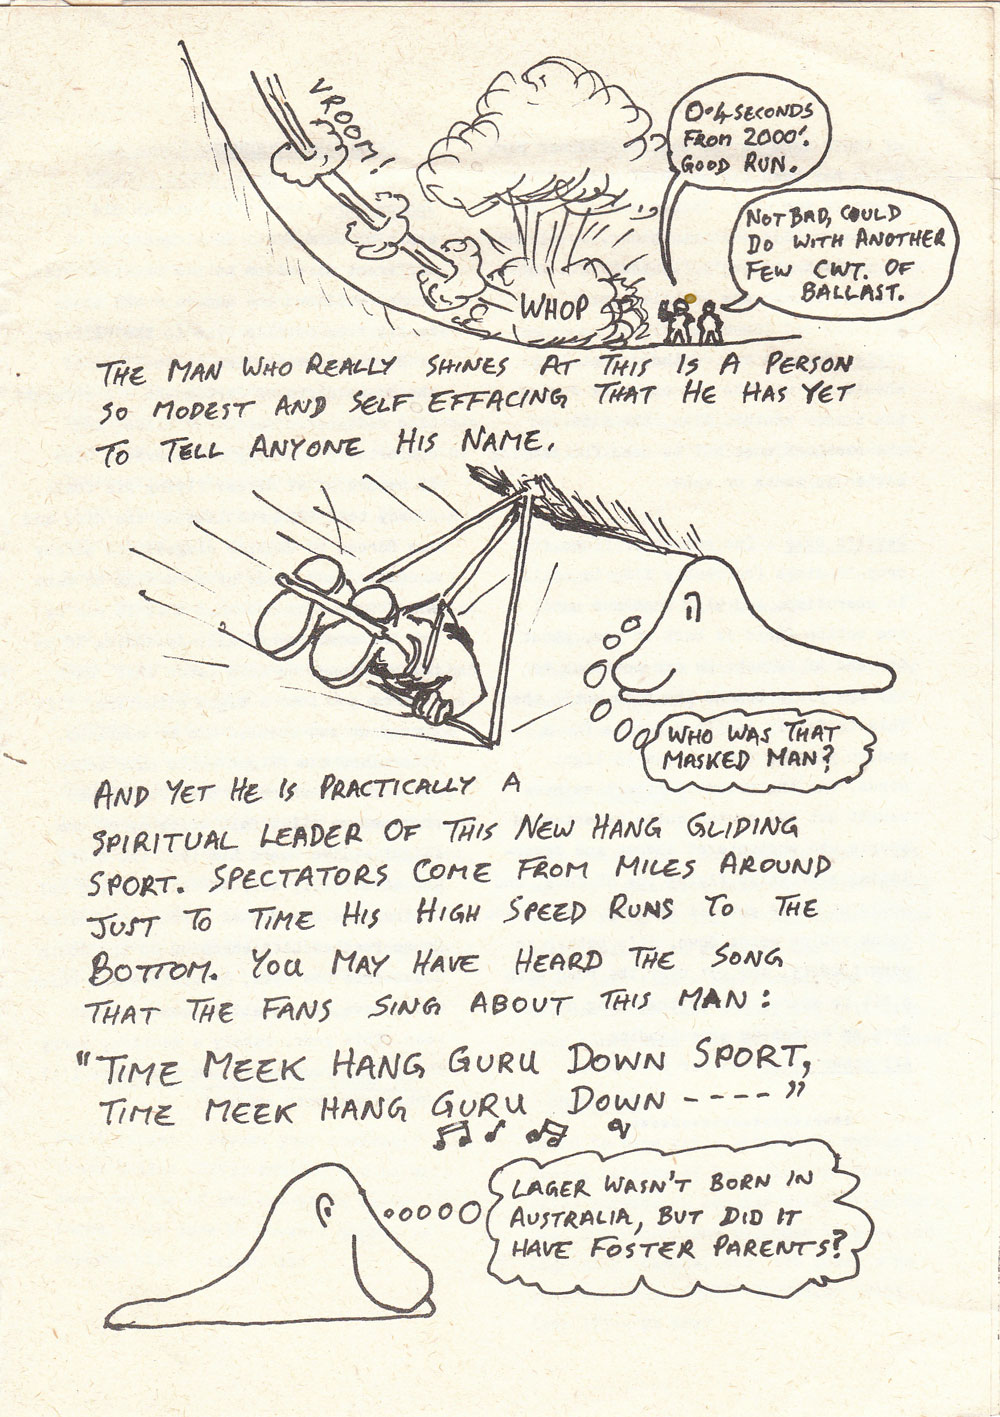 VROOM!
0.4 SECONDS
FROM 2000'.
GOOD RUN.
NOT BAD, COULD
DO WITH ANOTHER
FEW CWT. OF
BALLAST.
WHOP
THE MAN WHO REALLY SHINES AT THIS IS A PERSON
SO MODEST AND SELF EFFACING THAT HE HAS YET
TO TELL ANYONE HIS NAME.
WHO WAS THAT
MASKED MAN?
AND YET HE IS PRACTICALLY A
SPIRITUAL LEADER OF THIS NEW HANG GLIDING
SPORT. SPECTATORS COME FROM MILES AROUND
JUST TO TIME HIS HIGH SPEED RUNS TO THE
BOTTOM. YOU MAY HAVE HEARD THE SONG
THAT THE FANS SING ABOUT THIS MAN:
"TIME MEEK HANG GURU DOWN SPORT,
TIME MEEK HANG GURU DOWN ----"
LAGER WASN'T BORN IN
AUSTRALIA, BUT DID IT
HAVE FOSTER PARENTS?